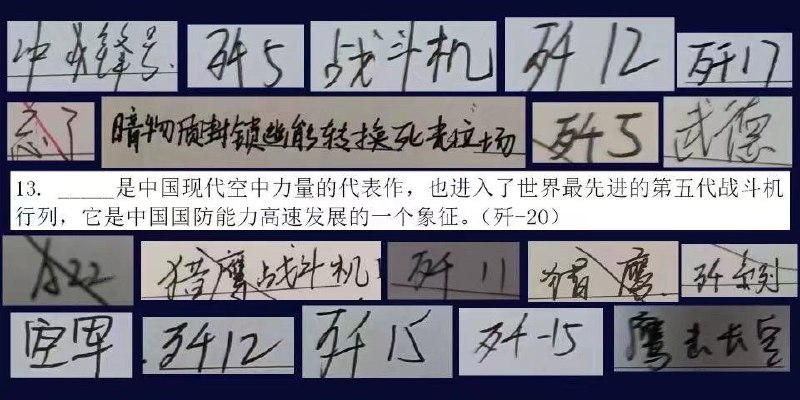 冲锋号 歼5 战斗机 歼12 歼17
忘了 暗物质封锁幽能转换死亡立场 歼5 武德
13. _____是中国现代空中力量的代表作，也进入了世界最先进的第五代战斗机
行列，它是中国国防能力高速发展的一个象征。（歼-20）
A22 猎鹰战斗机 歼11 猎鹰 歼系列
空军 歼12 歼15 歼-15 鹰击长空